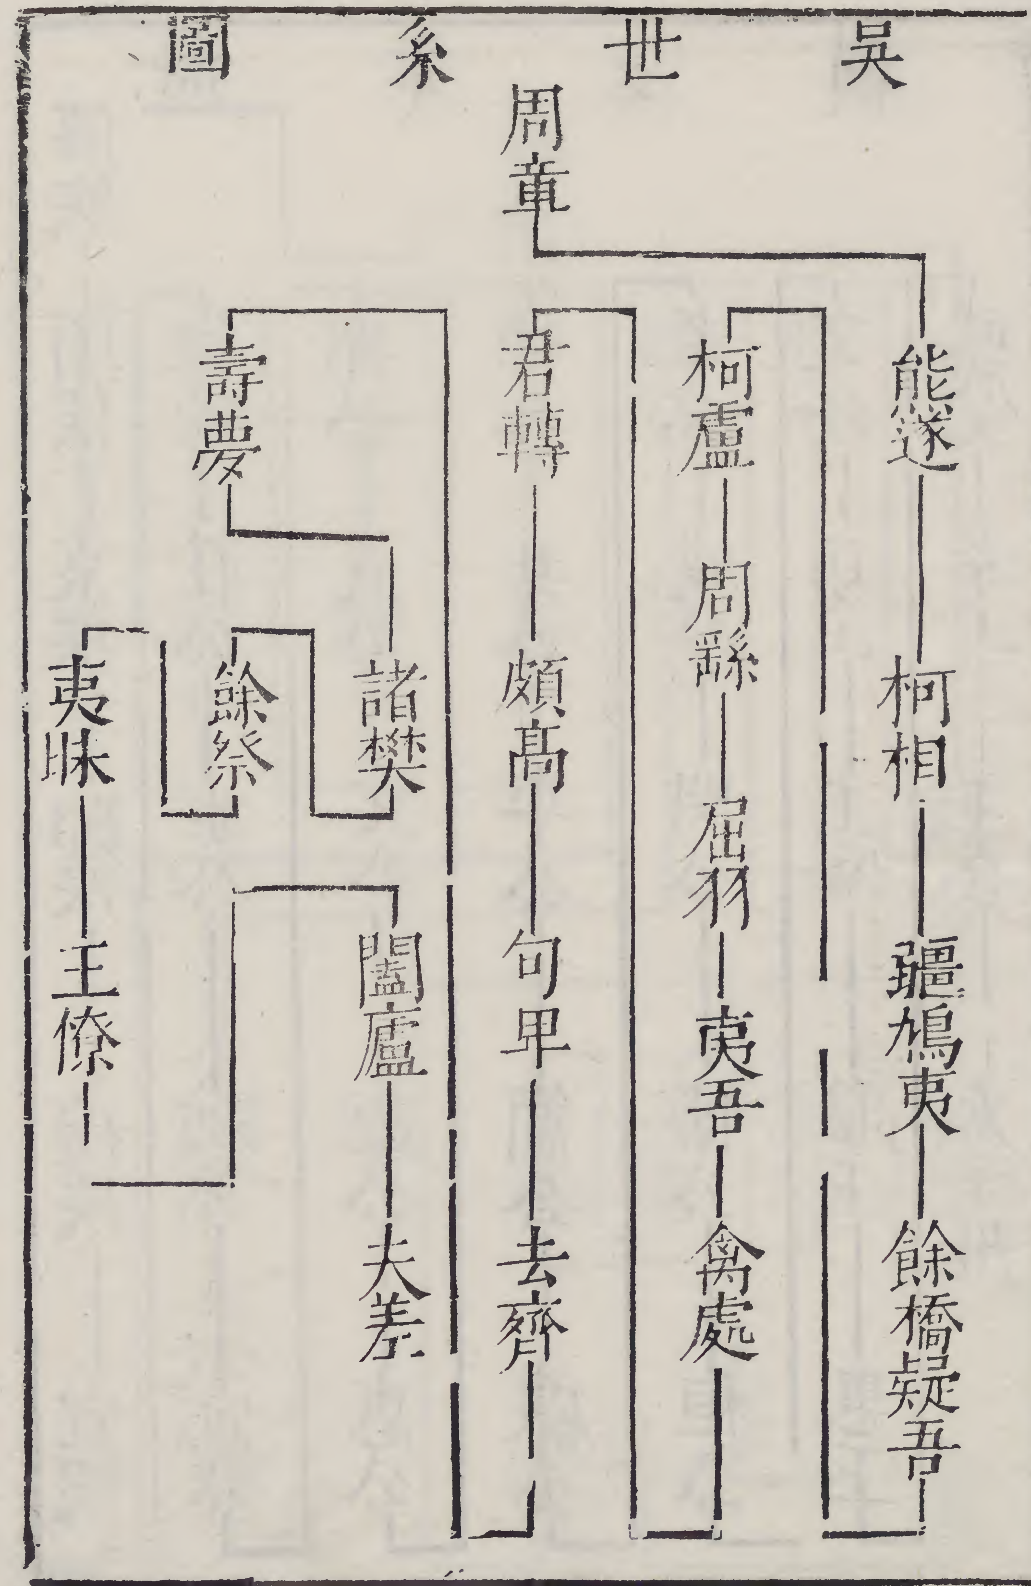 吳世系圖
周章
熊遂
柯相
彊鳩夷
餘橋疑吾
柯盧
周繇
屈羽
夷吾
禽處
君轉
頗高
句卑
去齊
壽夢
諸樊
餘祭
夷昧
王僚
闔廬
夫差